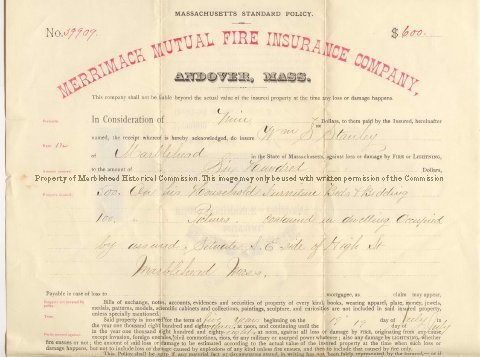 MASSACHUSETTS STANDARD POLICY.
No. 39909. $600.
MERRIMACK MUTUAL FIRE INSURANCE COMPANY,
ANDOVER, MASS.
This company shall not be liable beyond the actual value of the insured property at the time any loss or damage happens.
In Consideration of Nine Dollars, to them paid by the Insured, hereinafter
named, the receipt whereof is hereby acknowledged, do insure Wm Stanley
of Marblehead in the State of Massachusetts, against loss or damage by FIRE or LIGHTNING,
to the amount of Six Hundred Dollars,
Property of Marblehead Historical Commission. This image may only be used with written permission of the Commission
500. On his Household Furniture Beds & Bedding
100 " Pictures contained in dwelling Occupied
by assured Situated S. E. side of High St
Marblehead Mass.
Payable in case of loss to mortgagee, as claims may appear.
Bills of exchange, notes, accounts, evidences and securities of property of every kind, books, wearing apparel, plate, money, jewels,
medals, patterns, models, scientific cabinets and collections, paintings, sculpture, and curiosities are not included in said insured property
unless specially mentioned.
Said property is insured for the term of five years beginning on the day of July in
the year one thousand eight hundred and eighty at noon, and continuing until the day of July
in the year one thousand eight hundred and eighty at noon, against all loss or damage by FIRE, originating from any cause
except invasion, foreign enemies, civil commotions, riots, or any military or usurped power whatever; also any damage by LIGHTNING,
the amount of said loss or damage to be estimated according to the actual value of the insured property at the time when such loss or
damage happens, but not to include loss or damage caused by explosions of any kind unless fire ensues, and then to include that caused by